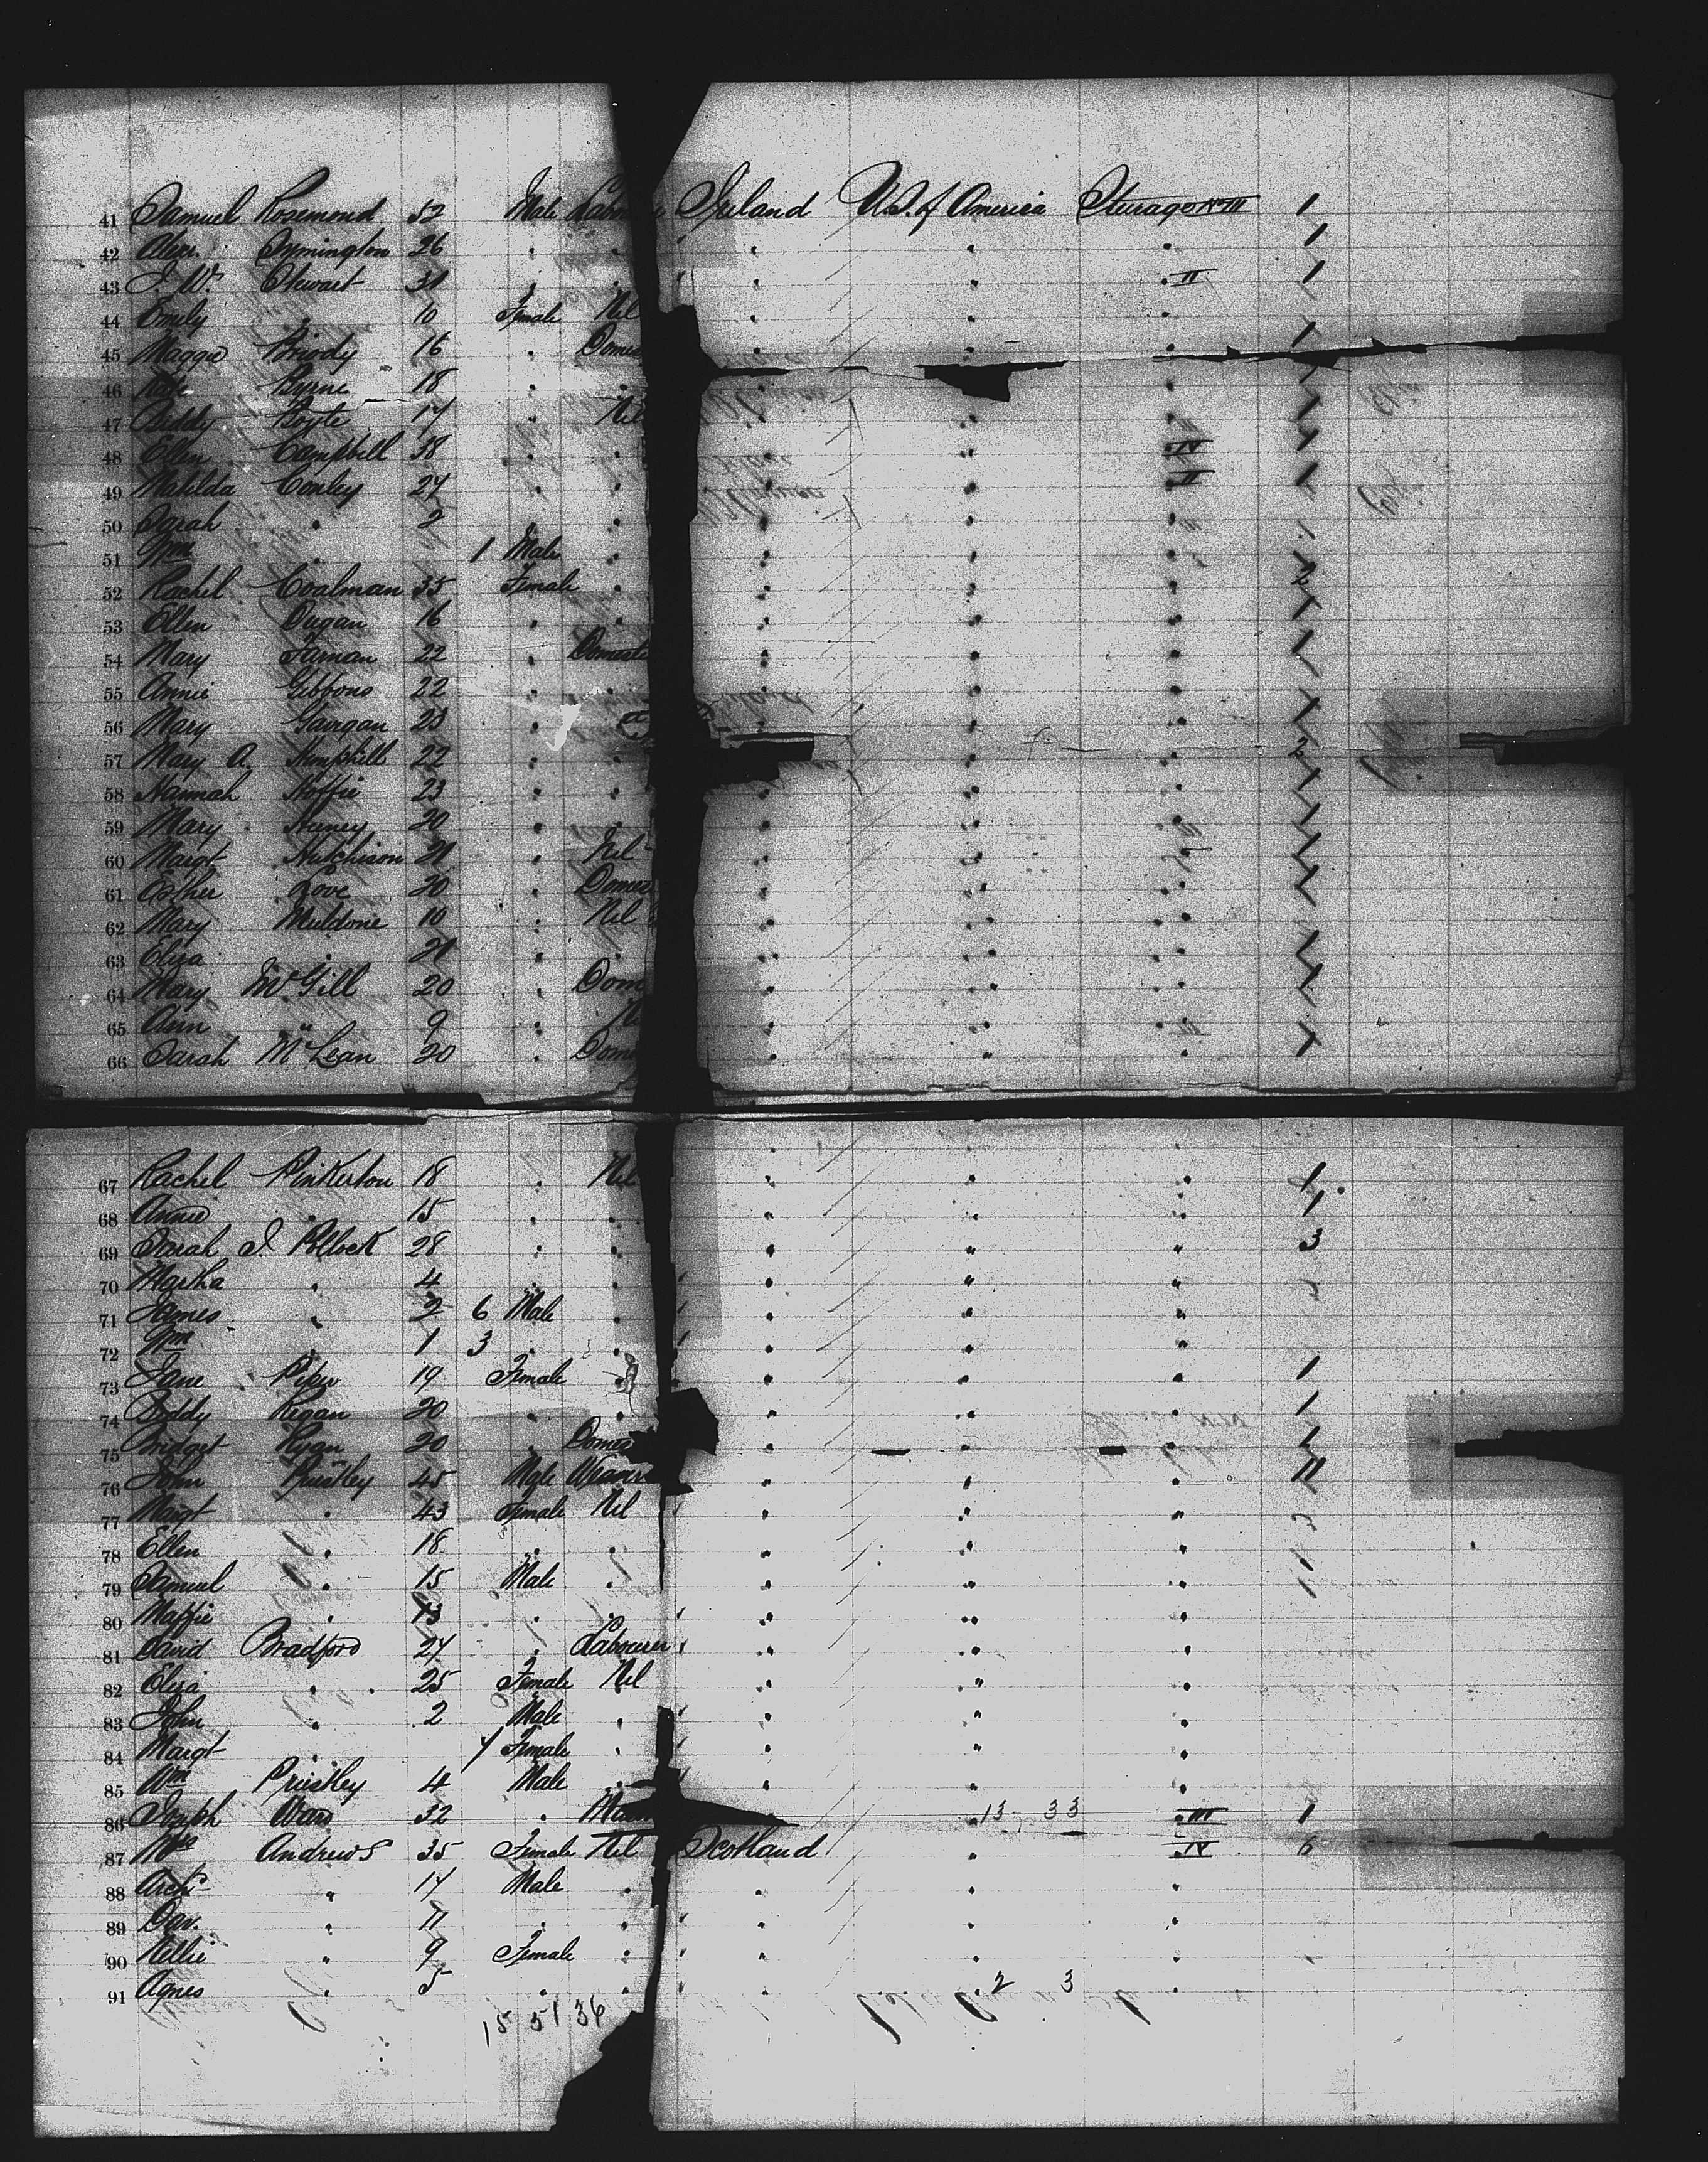 41 Samuel Rosemond 32 Male Ireland U.S. of America Steerage No III 1
42 Alex. Symington 26 " " " " " 1
43 J. W. Stewart 31 " " " " " II 1
44 Emily " 10 Female Nil " " "
45 Maggie Briody 16 " Domes " " " 1
46 Byrne 18 " " " " " 1
47 Biddy Boyle 17 " Nil " " " 1
48 Ellen Campbell 38 " " " " " IV 1
49 Matilda Conley 27 " " " " " II 1
50 Sarah " 2 " " " " "
51 Wm " 1 Male " " " "
52 Rachel Coalman 35 Female " " " " 2
53 Ellen Dugan 16 " " " " " 1
54 Mary Farnan 22 " Domesti " " " 1
55 Annie Gibbons 22 " " " " " 1
56 Mary Gaugan 23 " " " " 1
57 Mary A. Hemphill 22 " " " " 2
58 Hannah 23 " " " " " 1
59 Mary 20 " " " " " 1
60 Margt Hutchison 21 " Nil " " " 1
61 Esther Love 20 " Domes " " " 1
62 Mary Muldone 10 " Nil " " "
63 Eliza " 21 " " " " " 1
64 Mary McGill 20 " Dom " " " 1
65 Ann " 9 " " " "
66 Sarah McLean 20 " Dom " " " 1
67 Rachel Pinkerton 18 " Nil " " " 1
68 Annie " 15 " " " " " 1
69 Sarah J Pollock 28 " " " " " 3
70 Martha " 4 " " " " "
71 James " 2 6 Male " " " "
72 Wm " 1 3 " " " " "
73 Jane Piper 19 Female " " " " 1
74 Biddy Regan 20 " " " " " 1
75 Bridget Ryan 20 " Domes " " " 1
76 John Priestley 45 Male Weaver " " "
77 Margt " 43 Female Nil " " "
78 Ellen " 18 " " " " " 1
79 Samuel " 15 Male " " " " 1
80 " 13 " " " " "
81 David Bradford 27 " Labourer " " "
82 Eliza " 25 Female Nil " " "
83 John " 2 Male " " " "
84 Margt " Female " " " "
85 Wm Priestley 4 Male " " " "
86 Joseph Ward 32 " 13 33 " III 1
87 Mrs Andrews 35 Female Nil Scotland " " IV 6
88 Archd " 14 Male " " " "
89 Dav. " 11 " " " " "
90 Nellie " 9 Female " " " "
91 Agnes " 5 " " 2 3 "
15 51 36